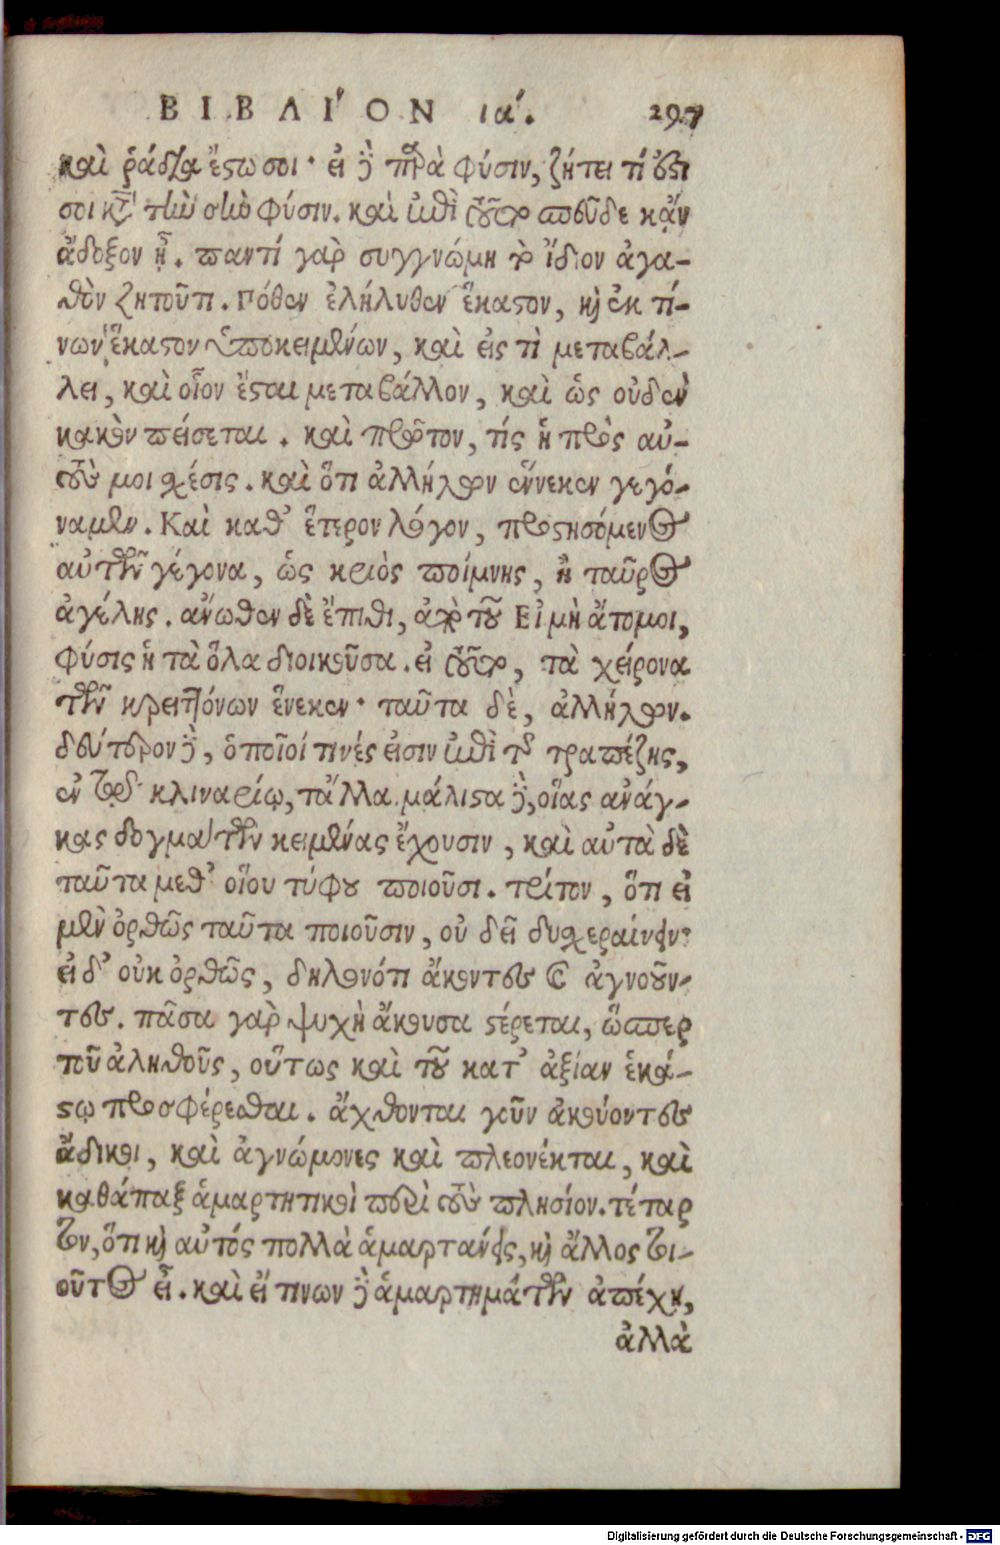 ΒΙΒΛΙ´ΟΝ ια´. 297
καὶ ῥάδια ἔστω σοι· εἰ δὲ παρὰ φύσιν, ζήτει τί ἐστι
σοι κατὰ τὴν σὴν φύσιν. καὶ ἐπὶ τοῦτο σπεῦδε κἄν
ἄδοξον ᾖ. παντὶ γὰρ συγγνώμη τὸ ἴδιον ἀγα-
θὸν ζητοῦντι. Πόθεν ἐλήλυθεν ἕκαστον, καὶ ἐκ τί-
νων ἕκαστον ὑποκειμένων, καὶ εἰς τὶ μεταβάλ-
λει, καὶ οἷον ἔσται μεταβάλλον, καὶ ὡς οὐδὲν
κακὸν πείσεται. καὶ πρῶτον, τίς ἡ πρὸς αὐ-
τοὺς μοι σχέσις. καὶ ὅτι ἀλλήλων ἕνεκεν γεγό-
ναμεν. Καὶ καθ᾽ ἕτερον λόγον, προστησόμενος
αὐτῶν γέγονα, ὡς κριὸς ποίμνης, ἢ ταῦρος
ἀγέλης. ἄνωθεν δὲ ἔπιθι, ἀπὸ τοῦ Εἰ μὴ ἄτομοι,
φύσις ἡ τὰ ὅλα διοικοῦσα. εἰ τοῦτο, τὰ χείρονα
τῶν κρειττόνων ἕνεκεν· ταῦτα δὲ, ἀλλήλων.
δεύτερον δὲ, ὁποῖοί τινές εἰσιν ἐπὶ τῆς τραπέζης,
ἐν τῷ κλιναρίῳ, τἄλλα. μάλιστα δὲ, οἵας ἀνάγ-
κας δογμάτων κειμένας ἔχουσιν, καὶ αὐτὰ δὲ
ταῦτα μεθ᾽ οἵου τύφου ποιοῦσι. τρίτον, ὅτι εἰ
μὲν ὀρθῶς ταῦτα ποιοῦσιν, οὐ δεῖ δυσχεραίνειν·
εἰ δ᾽ οὐκ ὀρθῶς, δηλονότι ἄκοντες καὶ ἀγνοοῦν-
τες. πᾶσα γὰρ ψυχὴ ἄκουσα στέρεται, ὥσπερ
τοῦ ἀληθοῦς, οὕτως καὶ τοῦ κατ᾽ ἀξίαν ἑκά-
στῳ προσφέρεσθαι. ἄχθονται γοῦν ἀκούοντες
ἄδικοι, καὶ ἀγνώμονες καὶ πλεονέκται, καὶ
καθάπαξ ἁμαρτητικοὶ περὶ τοὺς πλησίον. τέταρ
τον, ὅτι καὶ αὐτός πολλὰ ἁμαρτάνεις, καὶ ἄλλος τοι-
οῦτος εἶ. καὶ εἴ τινων δὲ ἁμαρτημάτων ἀπέχῃ,
ἀλλὰ
Digitalisierung gefördert durch die Deutsche Forschungsgemeinschaft - DFG